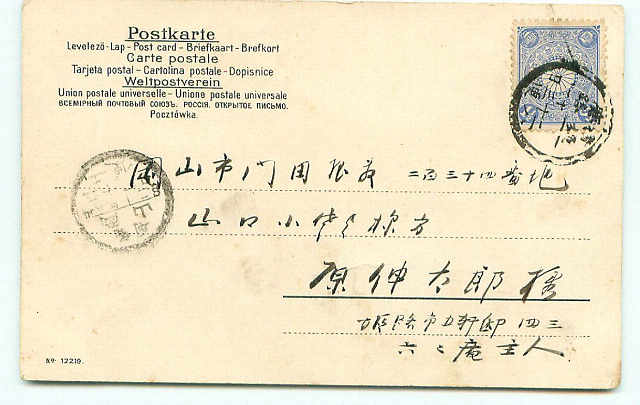 Postkarte
Levelező-Lap - Post card - Briefkaart - Brefkort
Carte postale
Tarjeta postal - Cartolina postale - Dopisnice
Weltpostverein
Union postale universelle - Unione postale universale
ВСЕМІРНЫЙ ПОЧТОВЫЙ СОЮЗЪ. РОССІЯ. ОТКРЫТОЕ ПИСЬМО.
Pocztówka.
岡山市門田 二百三十四番地
山口小 様方
原仲太郎様
姫路市五軒邸四三
六々庵主人
No 12219.